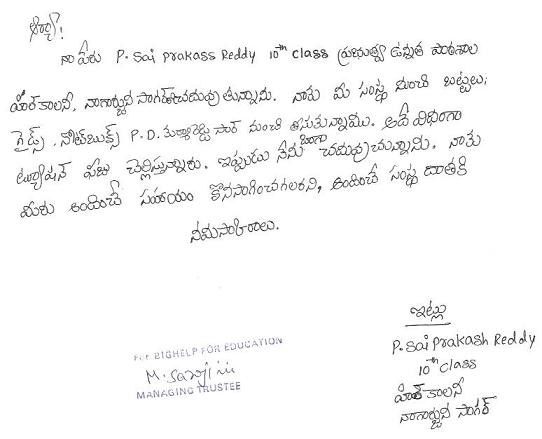 ఆర్యా!
నా పేరు P. Sai Prakass Reddy 10th class ప్రభుత్వ ఉన్నత పాఠశాల
హిల్ కాలనీ, నాగార్జున సాగర్ చదువుతున్నాను. నాకు మీ సంస్థ నుంచి బట్టలు,
గైడ్స్, నోట్‌బుక్స్ P.D. సార్ నుంచి తీసుకున్నాను. అదే విధంగా
ట్యూషన్ ఫీజు చెల్లిస్తున్నారు. ఇప్పుడు నేను బాగా చదువుచున్నాను. నాకు
మీరు అందించే సహాయం కొనసాగించగలరని, అందించే సంస్థ దాతకి
నమస్కారాలు.
ఇట్లు
P. Sai Prakash Reddy
10th Class
హిల్ కాలనీ
నాగార్జున సాగర్
For BIGHELP FOR EDUCATION
MANAGING TRUSTEE